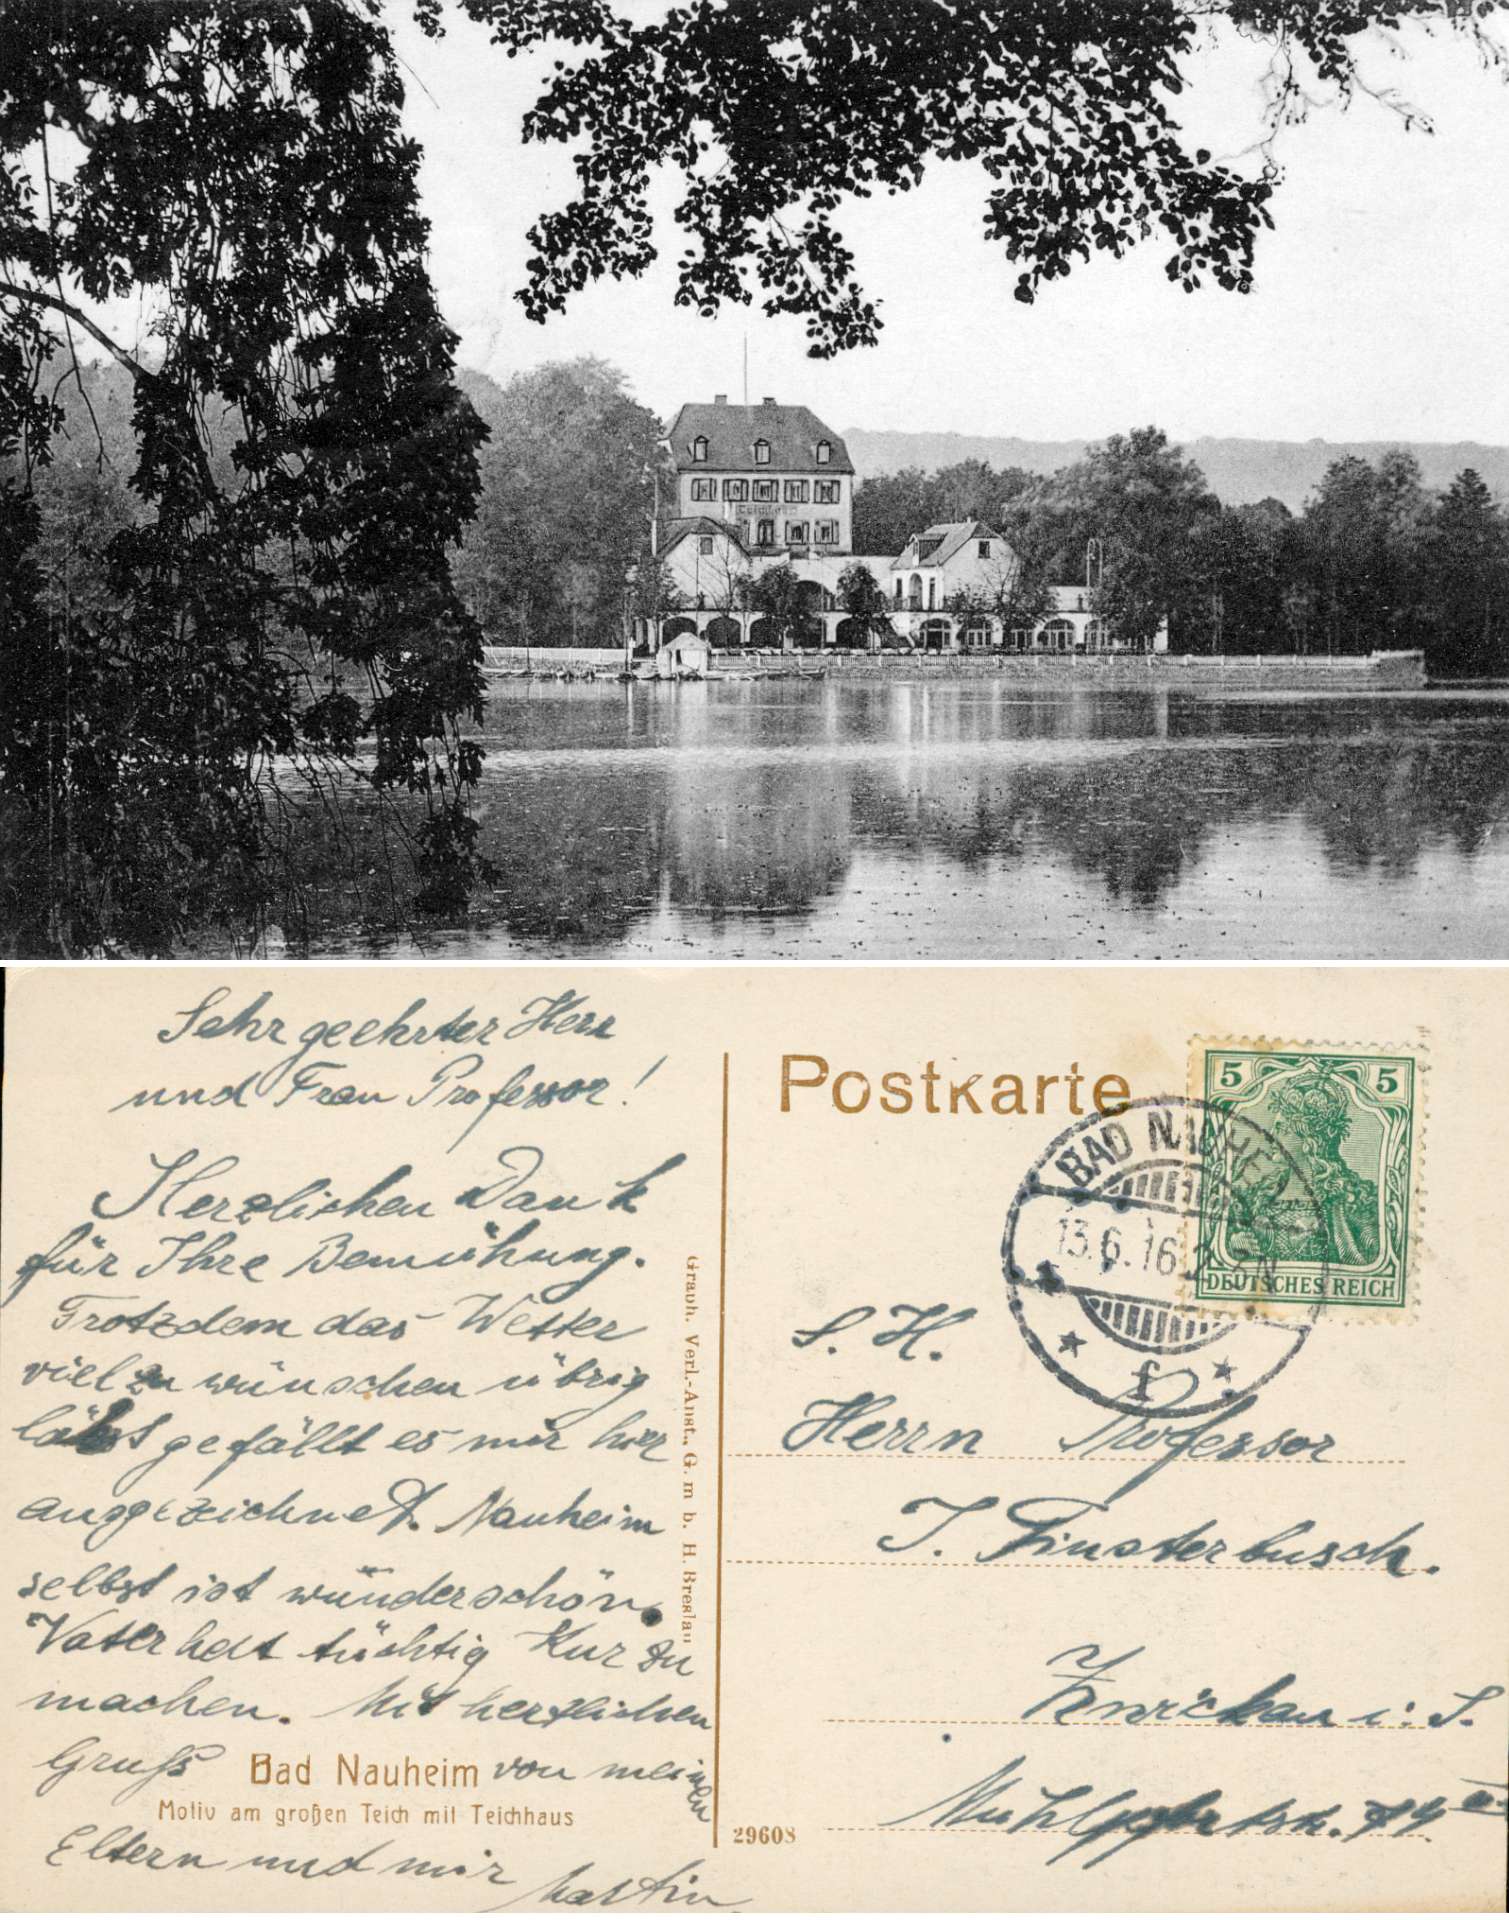 Teichhaus
Sehr geehrter Herr
und Frau Professor!
Herzlichen Dank
für Ihre Bemühung.
Trotzdem das Wetter
viel zu wünschen übrig
läßt gefällt es mir hier
ausgezeichnet. Nauheim
selbst ist wünderschön.
Vater hat tüchtig Kur zu
machen. Mit herzlichen
Gruß von meinen
Eltern und mir
Martin
Bad Nauheim
Motiv am großen Teich mit Teichhaus
Graph. Verl.-Anst., G. m. b. H. Breslau
29608
Postkarte
5 5
DEUTSCHES REICH
BAD NAUHEIM
13.6.16
f
S. H.
Herrn Professor
J. Finsterbusch.
Zwickau i. S.